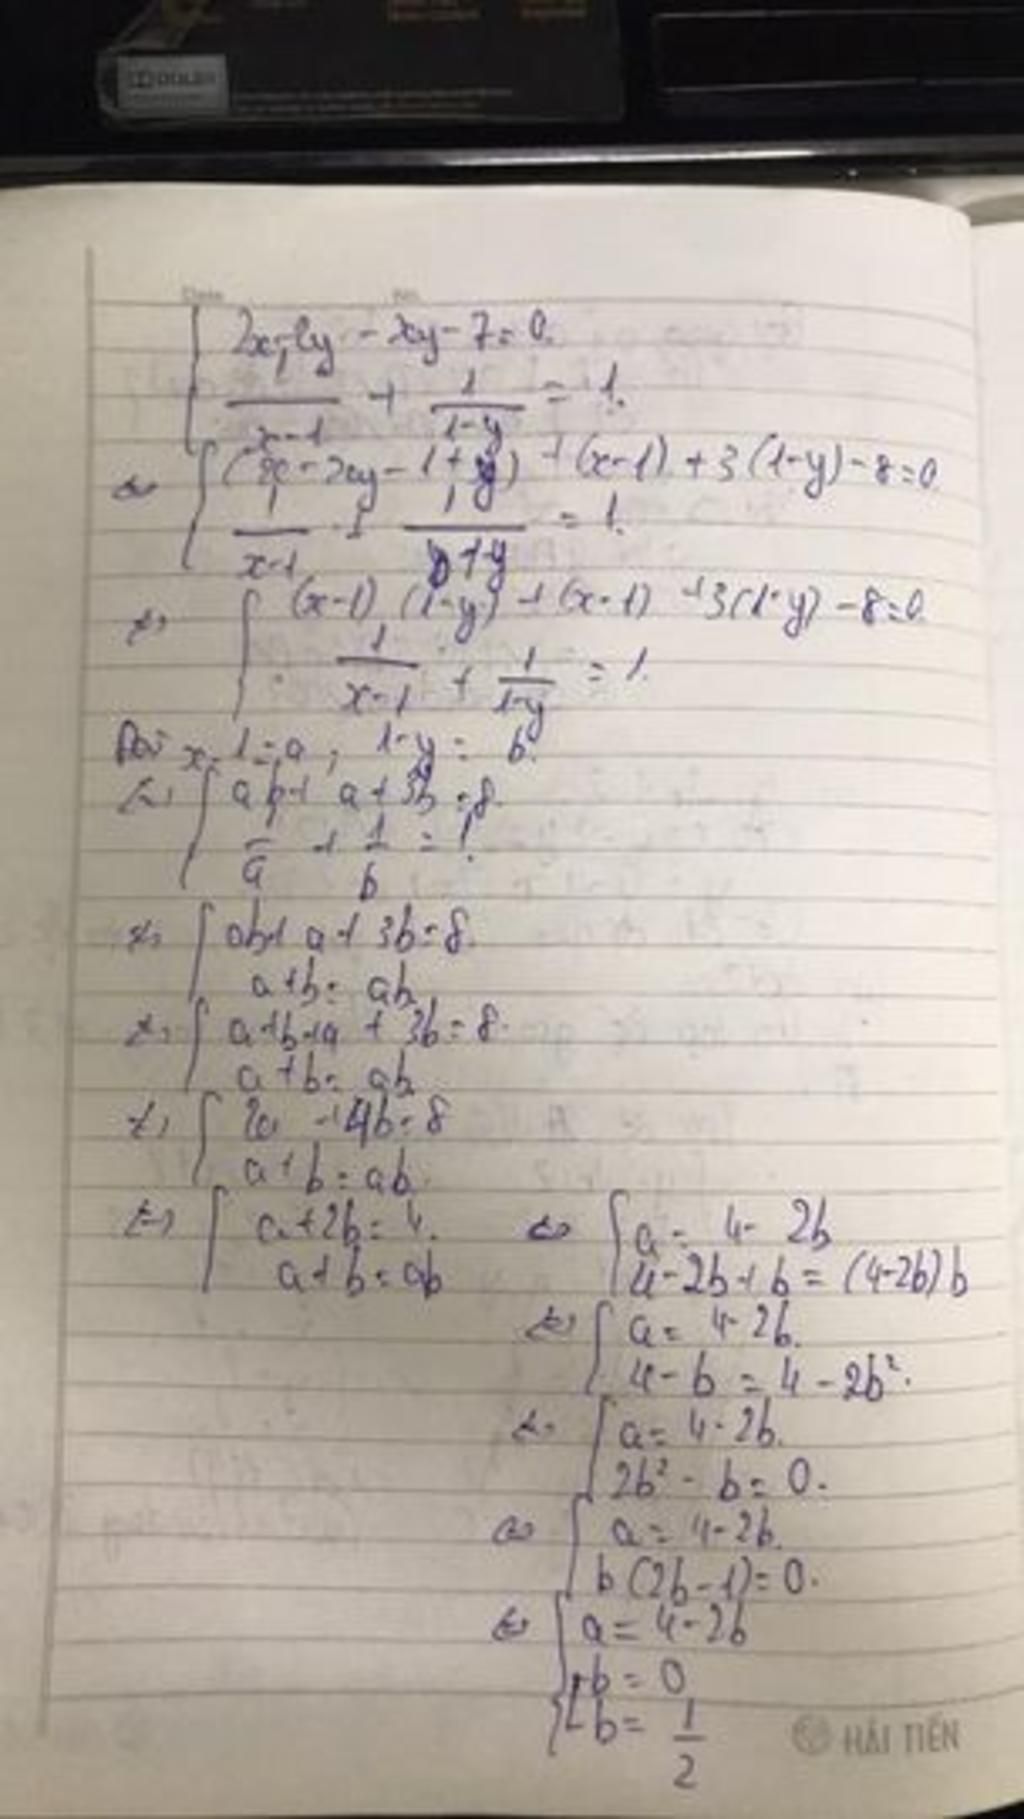 DOLBY
Date No.
2x-2y-xy-7=0.
1/(x-1) + 1/(1-y) = 1.
<=> (x-xy-1+y) + (x-1) + 3(1-y) - 8=0
1/(x-1) + 1/(1-y) = 1.
<=> (x-1)(1-y) + (x-1) + 3(1-y) - 8=0.
1/(x-1) + 1/(1-y) = 1.
Đặt x-1=a, 1-y = b.
<=> ab+a+3b=8.
1/a + 1/b = 1.
<=> ab+a+3b=8.
a+b=ab.
<=> a+b+a+3b=8.
a+b=ab.
<=> 2a+4b=8
a+b=ab.
<=> a+2b=4.
a+b=ab
<=> a=4-2b
4-2b+b=(4-2b)b
<=> a=4-2b.
4-b=4-2b².
<=> a=4-2b.
2b²-b=0.
<=> a=4-2b.
b(2b-1)=0.
<=> a=4-2b
b=0
b=1/2
HẢI TIẾN